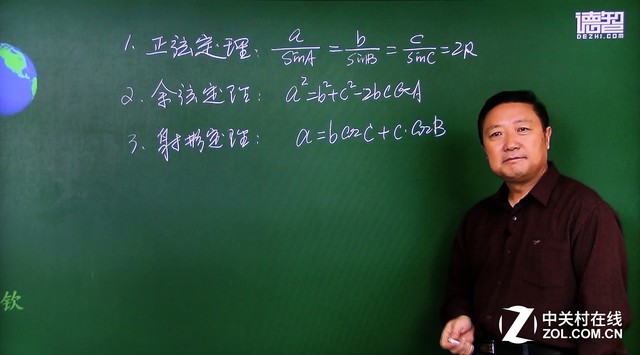 德智
DEZHI.COM
1. 正弦定理: a/sinA = b/sinB = c/sinC = 2R
2. 余弦定理: a²=b²+c²-2bccosA
3. 射影定理: a=bcosC+c·cosB
钦
中关村在线
ZOL.COM.CN